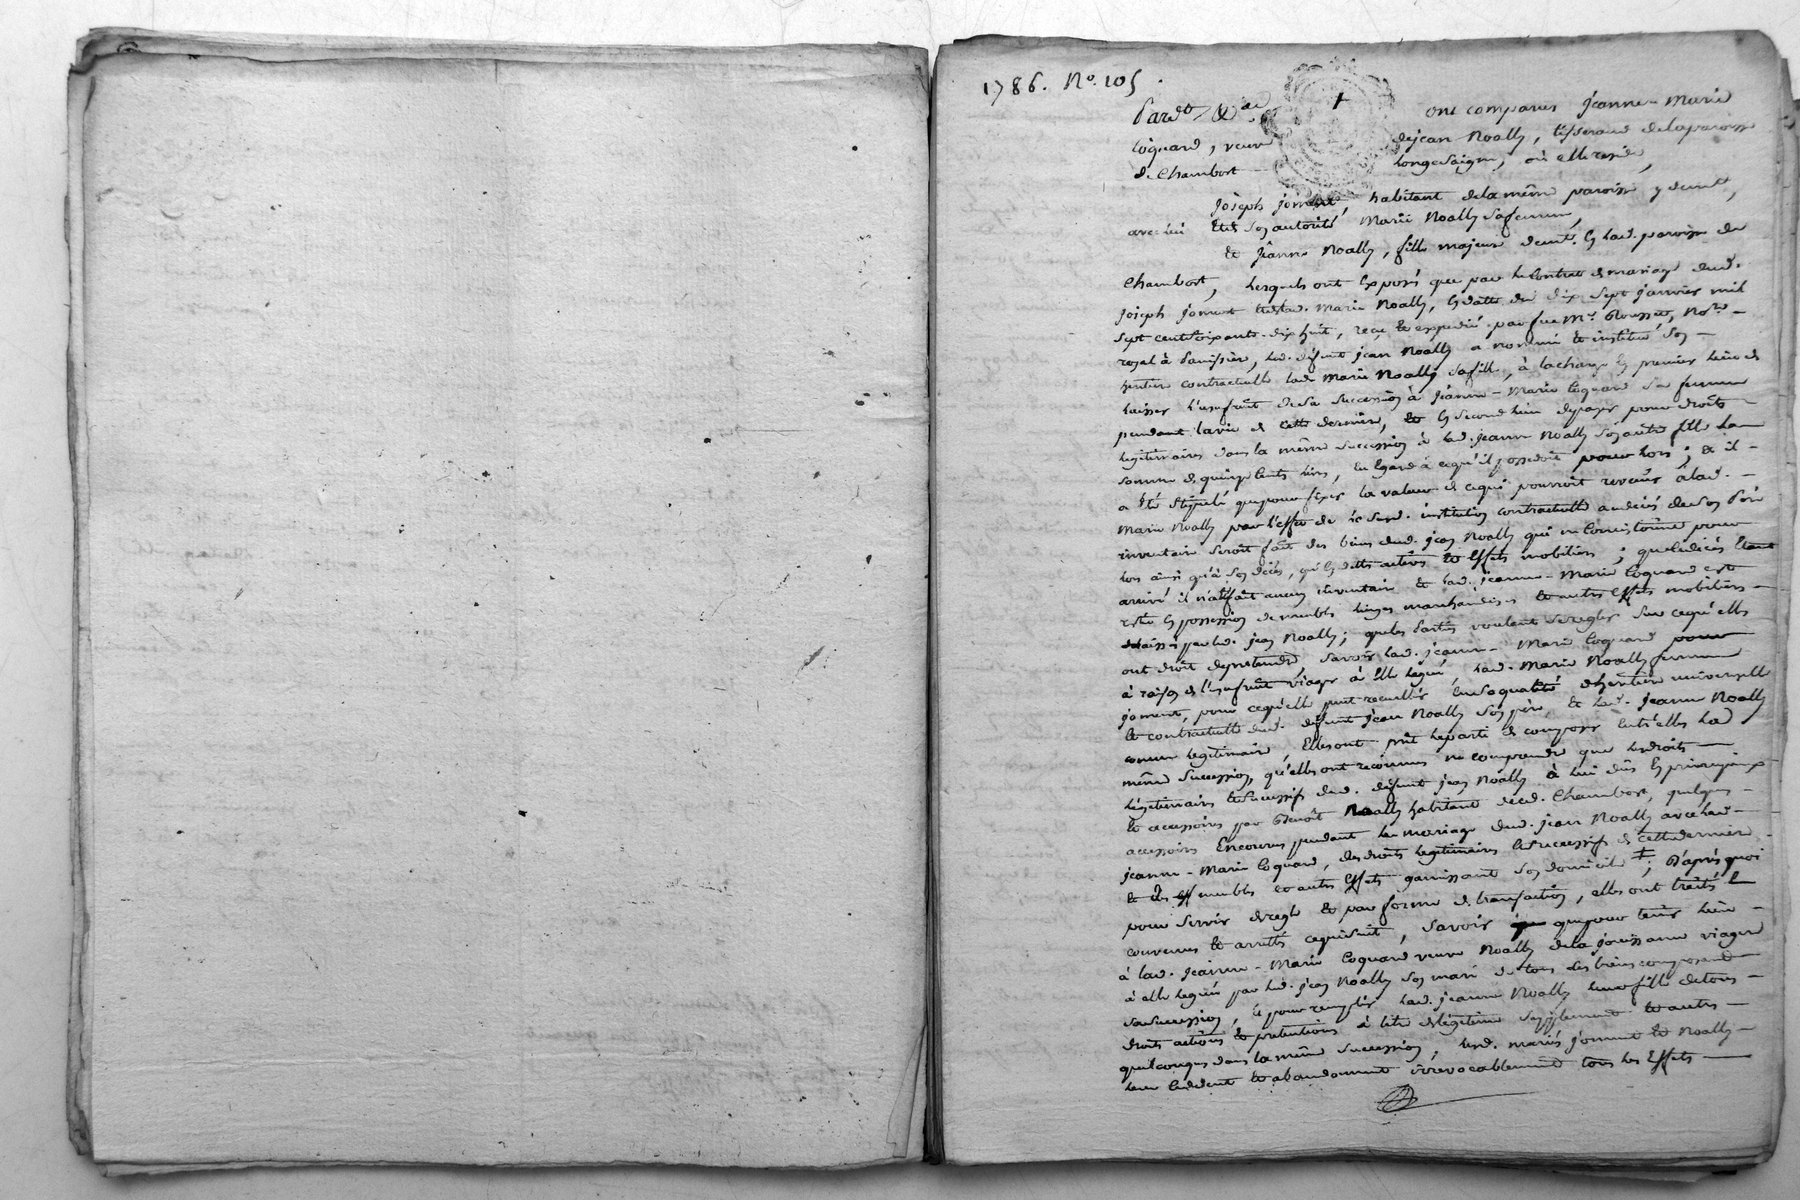 1786. No. 105
Pardt. & ont comparus Jeanne-Marie
Coquard, veuve dejean Noally, tisserand delaparoisse
de Chambost Longesaigne, où elle reside,
joseph joment, habitant dela même paroisse y demt,
avec lui Et de son autorité Marie Noally safemme,
& jeanne Noally, fille majeure demt. en lad. paroisse de
Chambost, Lesquels ont Exposé que par le Contrat de mariage dud.
joseph joment Etdelad. Marie Noally, En datte du dix sept janvier mil
sept cent soixante-dix huit, reçu & expedié par feu Me. Rousset, Nore.
royal à Panissière, led. défunt jean Noally a nommé & institué son
heritier contractuelle lade Marie Noally safille, à lacharge En premier lieu de
laisser l'usufruit desa succession à jeanne-Marie Coquard sa femme
pendant lavie de cette derniere, & En second lieu depayer pour droits
legitimaires dans la même succession à lad. jeanne Noally son autre fille la
somme de quinze cents livres, Eu Egard à cequ'il possedoit pour lors; & il
a Eté stipulé quepour fixer la valeur de cequi pourroit revenir à lad.
Marie Noally par l'effet de lad. institution contractuelle audécès deson Père
inventaire seroit fait des biens dud. jean Noally qui en Consistoient pour
lors ainsi qu'à son décès, qu'En dettes actives & Effets mobiliers; queledécès Etant
arrivé il n'a été fait aucun inventaire & lad. jeanne-Marie Coquard est
restée En possession demeubles linges marchandises & autres Effets mobiliers
délaissés par led. jean Noally; queles Parties voulant serégler sur cequ'elles
ont droit depretendre, savoir lad. jeanne-Marie Coquard pour
à raison de l'usufruit viager à Elle légué, lad. Marie Noally femme
joment, pour cequ'elle peut recueillir Ensaqualité d'heritiere universelle
& contractuelle dud. défunt jean Noally son père, & lad. jeanne Noally
comme legitimaire, Elles ont prit leparti de composer Entr'elles lad
même succession, qu'elles ont reconnu ne comprendre que lesdroits
légitimaires & successifs dud. défunt jean Noally à lui dûs En principaux
& accessoires par Benoît Noally habitant dud. Chambost, quelques
accessoires Encourus pendant le mariage dud. jean Noally avec lad.
jeanne-Marie Coquard, desdroits legitimaires & successifs de cette derniere
& les meubles & autres Effets garnissant son domicile ‡; D'après quoi
pour servir de regle & par forme de transaction, elles ont traité
convenu & arrêté cequisuit, savoir quepour tenir lieu
à lad. jeanne-Marie Coquard veuve Noally dela jouissance viagere
à elle leguée par led. jean Noally son mari de tous les biens composant
sasuccession, & pour remplir lad. jeanne Noally leur fille detous
droits actions & pretentions à titre delégitime supplement & autres
quelconques dans la même succession, lesd. mariés joment & Noally
leur Cedent & abandonnent irrevocablement tous les Effets